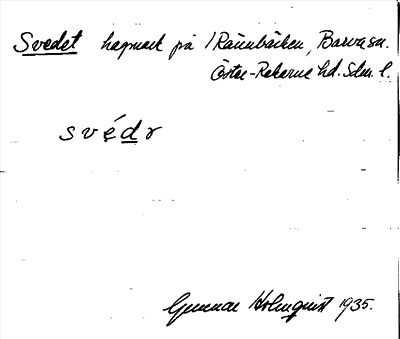 Svedet hagmark på /Rännbäcken, Barva sn.
Öster-Rekarne hd. Sdm. l.
svédr
Gunnar Holmquist 1935.